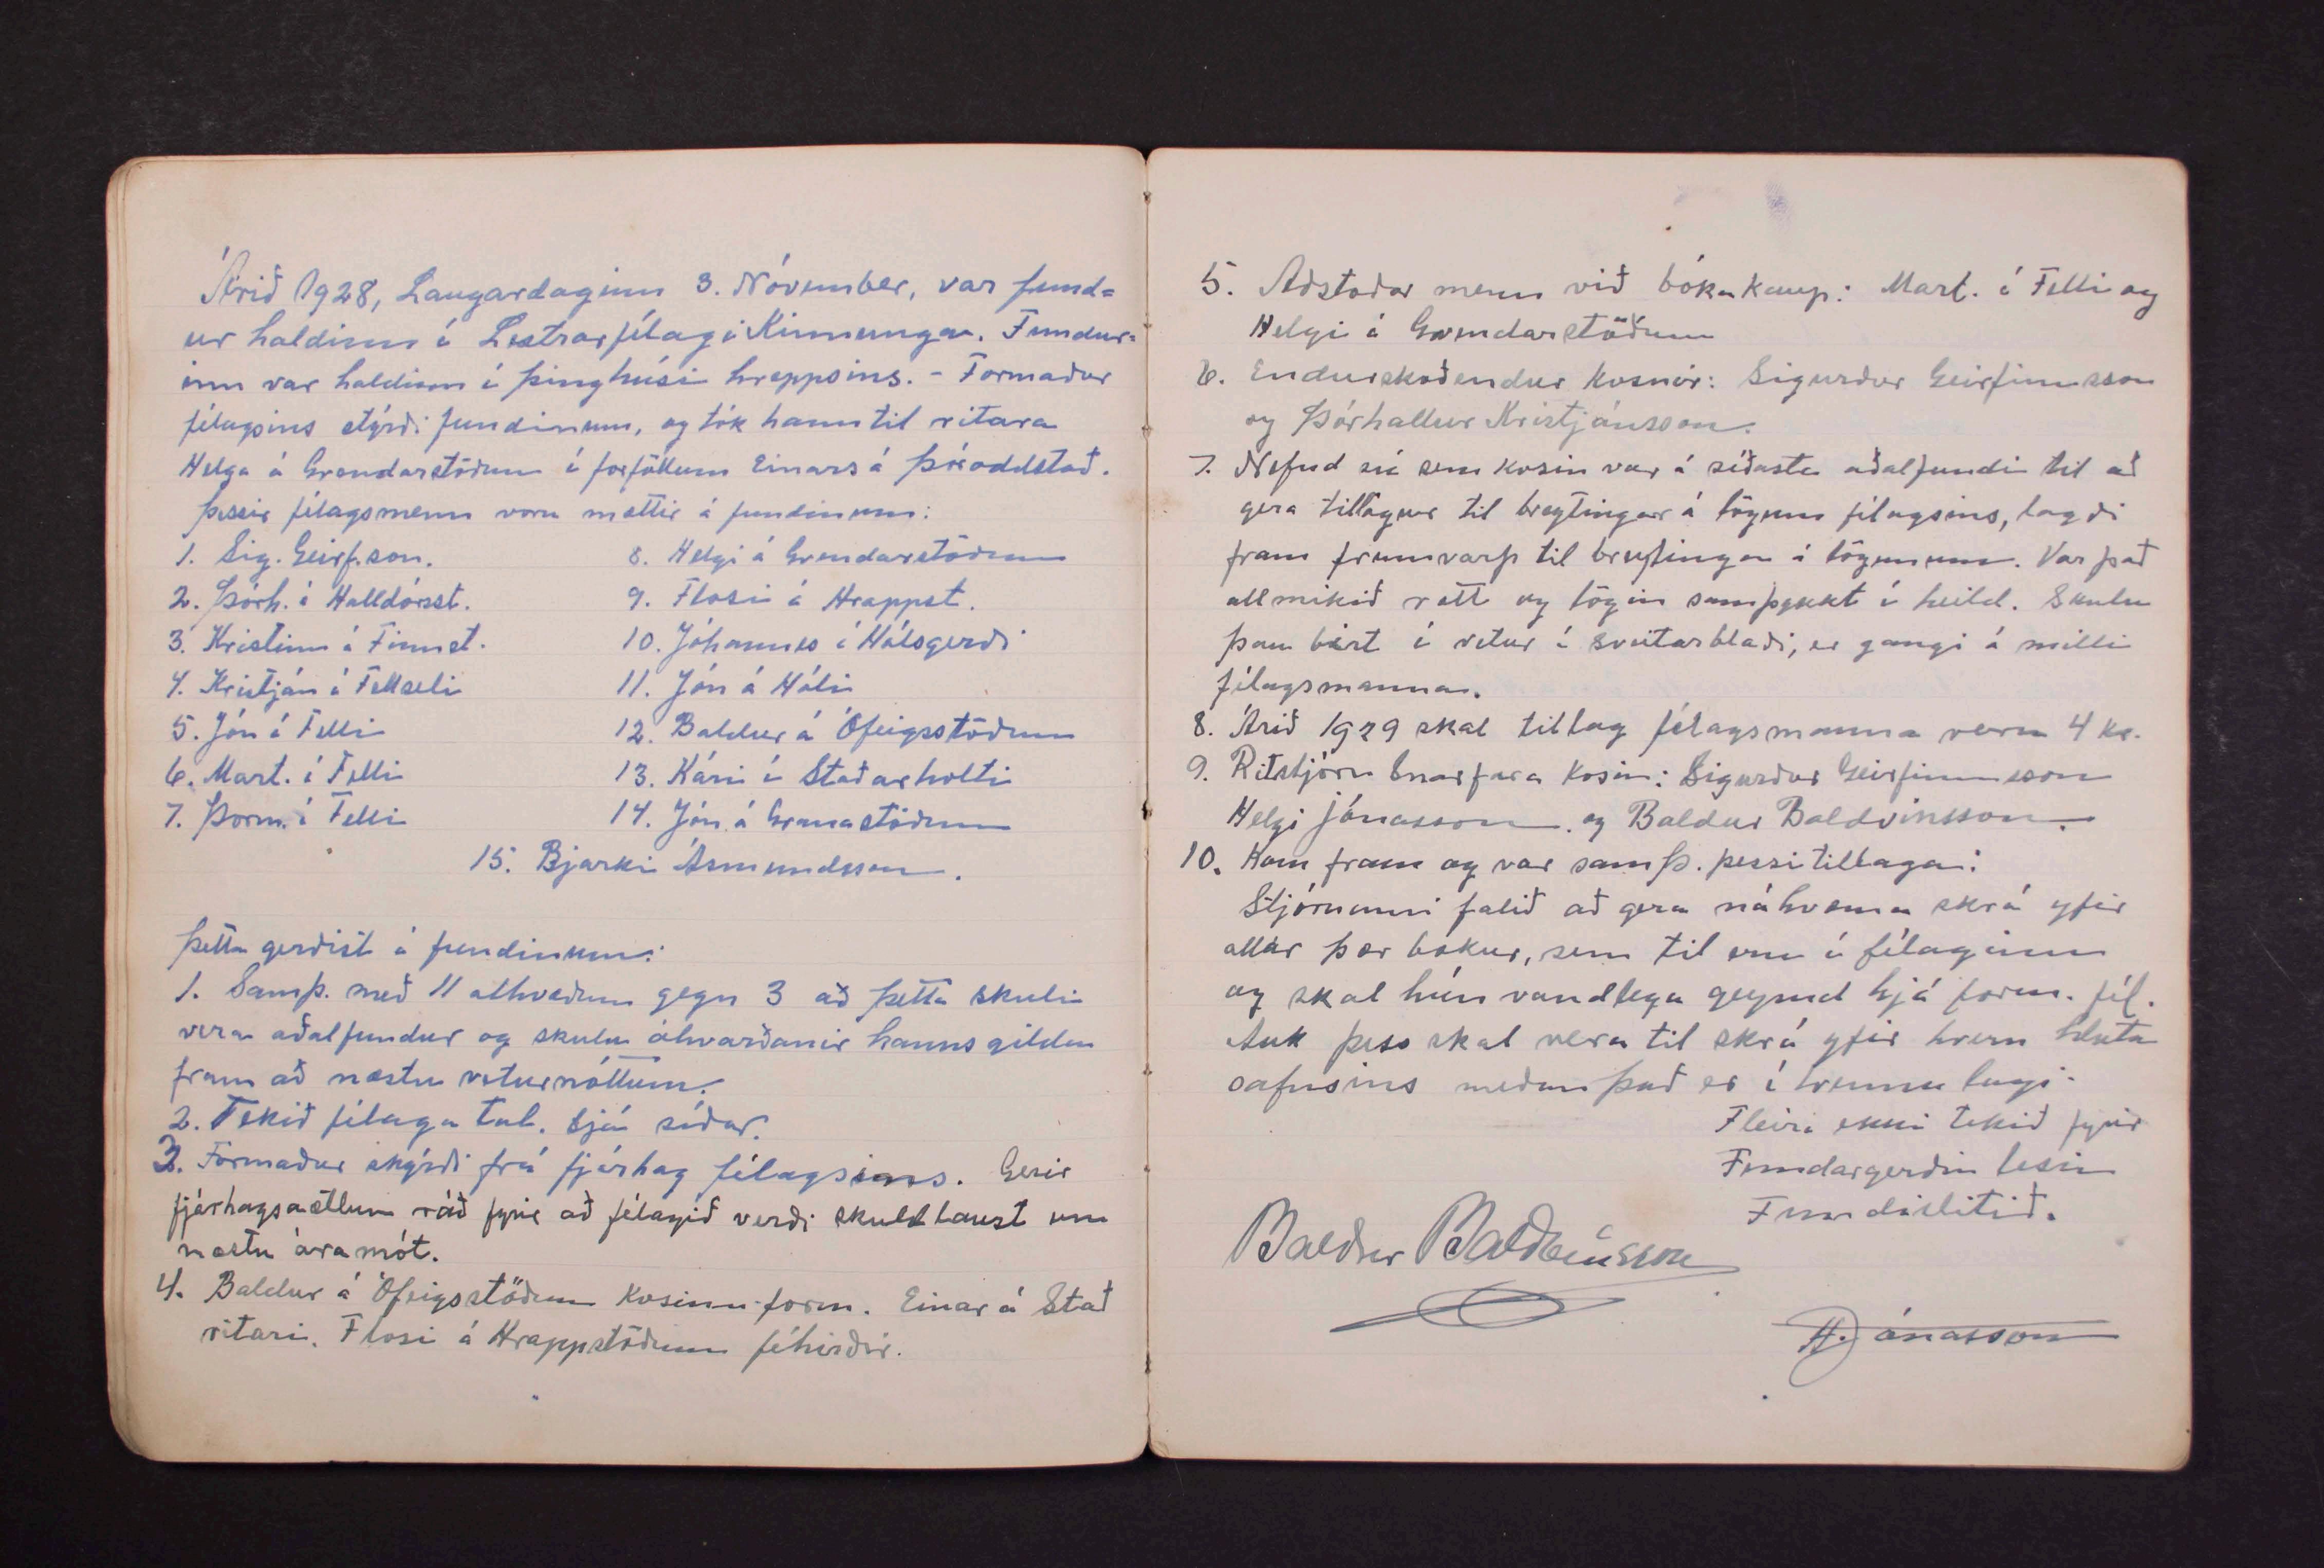 Árið 1928, Laugardaginn 3. Nóvember, var fund=
ur haldinn í Lestrarfélagi Kinnunga. Fundur=
inn var haldinn í þinghúsi hreppsins. - Formaður
félagsins stýrði fundinum, og tók hann til ritara
Helga á Grendarstöðum í forföllum Einars á Þóroddstað.
Þessir félagsmenn voru mættir á fundinum:
1. Sig. Geirf.son.
2. Þórh. á Halldórsst.
3. Kristinn á Finnst.
4. Kristján í Fellseli
5. Jón í Felli
6. Mart. í Felli
7. Þorm. í Felli
8. Helgi á Grendarstöðum
9. Flosi á Hrappst.
10. Jóhannes í Hálsgerði
11. Jón á Hóli
12. Baldur á Ófeigsstöðum
13. Kári í Staðarholti
14. Jón á Granastöðum
15. Bjarki Ásmundsson.
Þetta gerðist á fundinum:
1. Samþ. með 11 atkvæðum gegn 3 að þetta skuli
vera aðalfundur og skulu ákvarðanir hanns gilda
fram að næstu veturnóttum.
2. Tekið félaga tal. sjá síðar.
3. Formaður skýrði frá fjárhag félagsins. Gerir
fjárhagsáætlun ráð fyrir að félagið verði skuldlaust um
næstu áramót.
4. Baldur á Ófeigsstöðum kosinn form. Einar á Stað
ritari. Flosi á Hrappstöðum féhirðir.
5. Aðstoðar menn við bókakaup: Mart. í Felli og
Helgi á Grendarstöðum
6. Endurskoðendur kosnir: Sigurður Geirfinnsson
og Þórhallur Kristjánsson.
7. Nefnd sú sem kosin var á síðasta aðalfundi til að
gera tillögur til breytingar á lögum félagsins, lagði
fram frumvarp til breytinga á lögunum. Var það
allmikið rætt og lögin samþykkt í heild. Skulu
þau birt í vetur í sveitarblaði, er gangi á milli
félagsmanna.
8. Árið 1929 skal tillag félagsmanna vera 4 kr.
9. Ritstjórn Snarfara kosin: Sigurður Geirfinnsson
Helgi Jónasson og Baldur Baldvinsson.
10. Kom fram og var samþ. þessi tillaga:
Stjórnunni falið að gera nákvæma skrá yfir
allar þær bækur, sem til eru í félaginu
og skal hún vandlega geymd hjá form. fél.
Auk þess skal vera til skrá yfir hvern hluta
safnsins meðan það er í þrennu lagi.
Fleira ekki tekið fyrir
Fundargerðin lesin
Fundislitið.
Baldur Baldvinsson
H. Jónasson